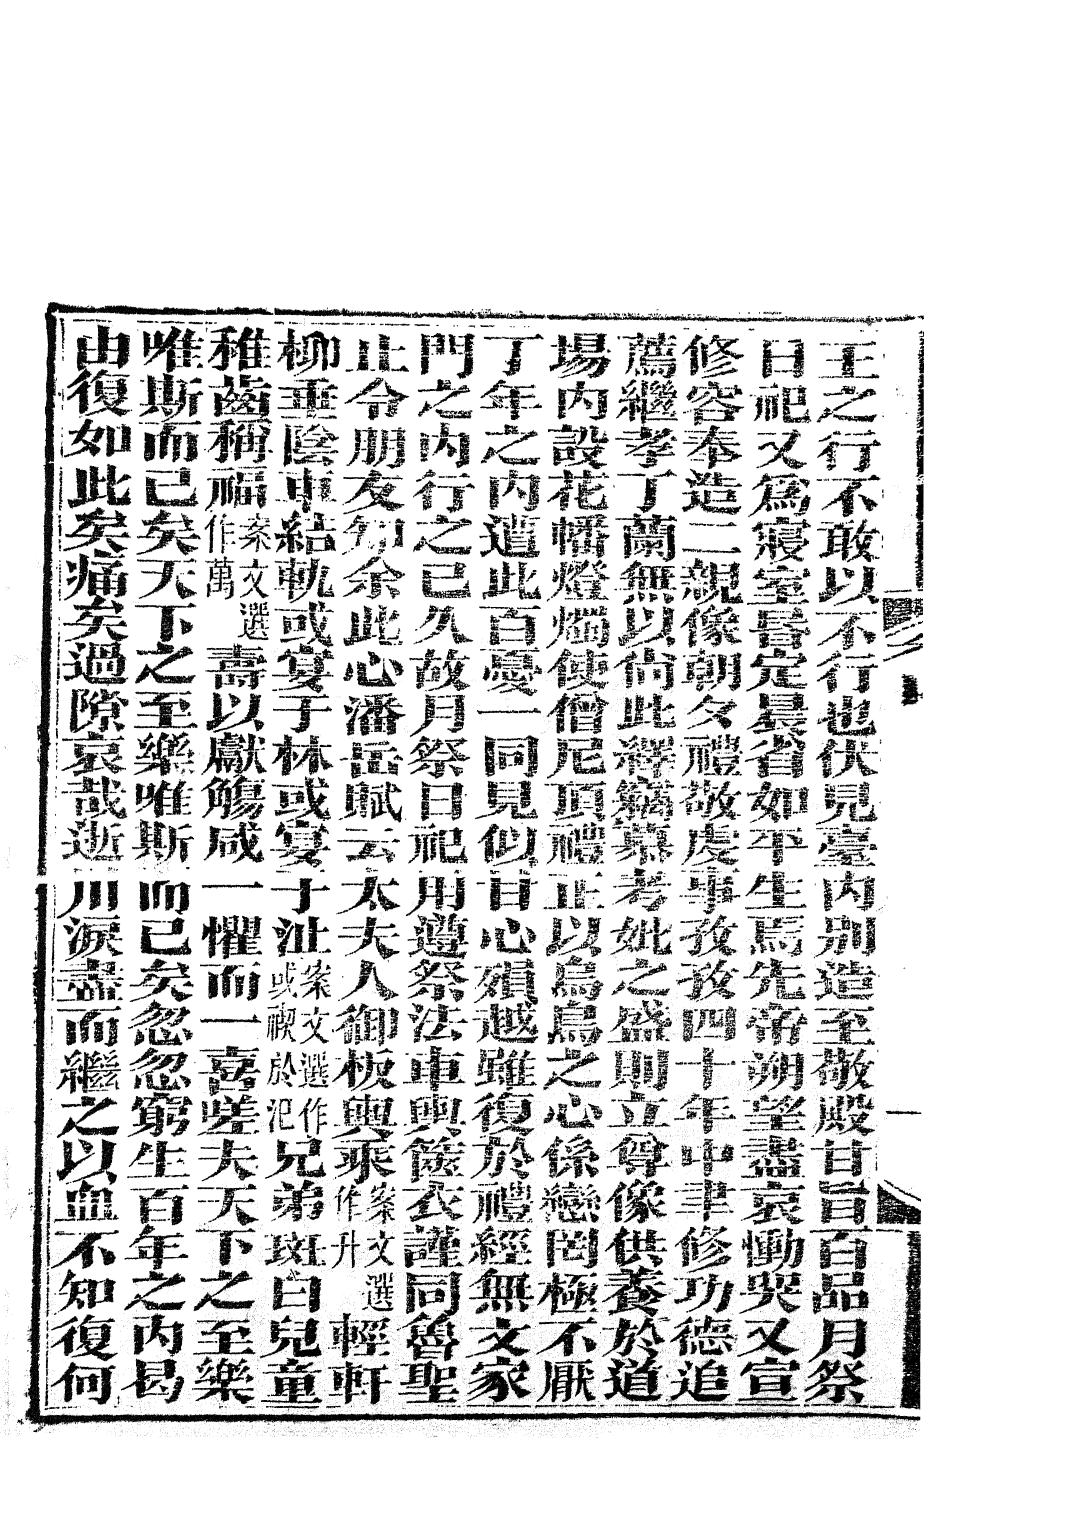 王之行不敢以不行也伏見臺内别造至敬殿甘旨百品月祭
日祀又爲寢室昏定晨省如平生焉先帝朔望盡哀慟哭又宣
修容奉造二親像朝夕禮敬虔事孜孜四十年中聿修功德追
薦繼孝丁蘭無以尚此繹竊慕考妣之盛則立尊像供養於道
場内設花幡燈燭使僧尼頂禮正以烏鳥之心係戀罔極不厭
丁年之内遭此百憂一同見似甘心殞越雖復於禮經無文家
門之内行之已久故月祭日祀用遵祭法車輿篋衣謹同魯聖
止令朋友知余此心潘岳賦云太夫人御板輿乘案文選作升輕軒
柳垂陰車結軌或宴于林或宴于沚案文選作或禊於汜兄弟斑白兒童
稚齒稱福案文選作萬壽以獻觴咸一懼而一喜嗟夫天下之至樂
唯斯而已矣天下之至樂唯斯而已矣忽忽窮生百年之内曷
由復如此矣痛矣過隙哀哉逝川淚盡而繼之以血不知復何